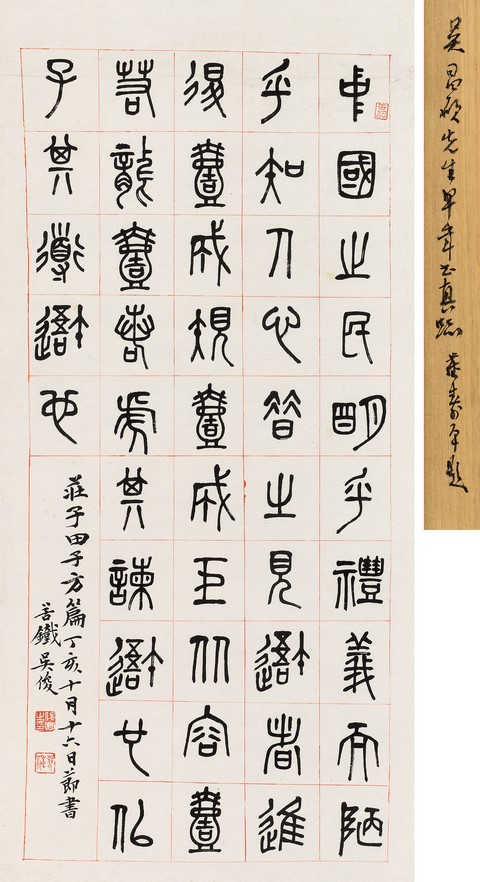 中國之民明乎禮義而陋
乎知人心昔之見吾者進
退壹成規壹成巨从容壹
若龍壹若虎其諫吾也似
子其導吾也
莊子田子方篇丁亥十月十六日節書
苦鐵吳俊
吳昌碩先生早年書真蹟 壽平題